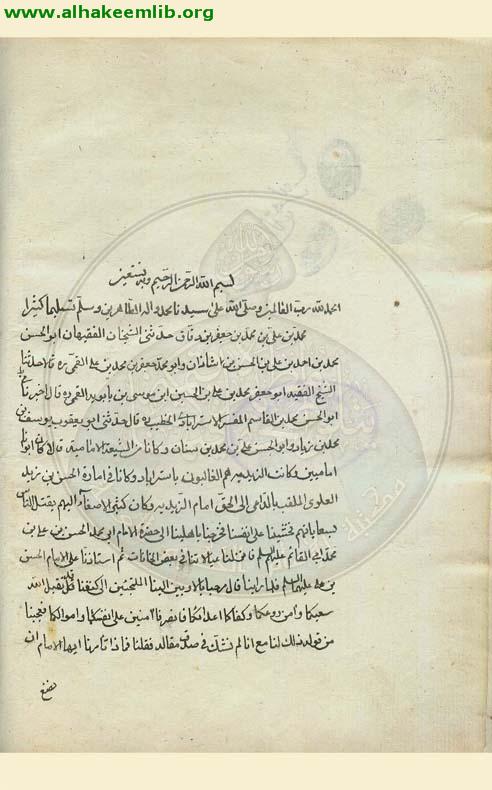 www.alhakeemlib.org
بسم الله الرحمن الرحيم وبه نستعين
الحمد لله رب العالمين وصلى الله على سيدنا محمد وآله الطاهرين وسلم تسليما كثيرا
محمد بن علي بن محمد بن جعفر بن دقاق حدثني الشيخان الفقيهان ابو الحسن
محمد بن احمد بن علي بن الحسن بن شاذان وابو محمد جعفر بن محمد بن علي القمي ره قالا حدثنا
الشيخ الفقيه ابو جعفر محمد بن علي بن الحسين ابن موسى بن بابويه القمي ره قال اخبرنا
ابو الحسن محمد بن القاسم المفسر الاسترابادي الخطيب ره قال حدثني ابو يعقوب يوسف بن
محمد بن زياد وابو الحسن علي بن محمد بن سنان وكانا من الشيعة الامامية قالا كان ابوانا
اماميين وكانت الزيدية هم الغالبون باستراباد وكانا في امارة الحسن بن زيد
العلوي الملقب بالداعي الى الحق امام الزيدية وكان كثير الاصغاء اليهم يقتل الناس
بسعاياتهم فخشينا على انفسنا فخرجنا باهلينا الى حضرة الامام ابي محمد الحسن بن علي بن
محمد ابي القائم عليهم السلم فانزلنا عيالاتنا في بعض الخانات ثم استاذنا على الامام الحسن
بن علي عليهما السلم فلما رانا قال مرحبا بالاوين الينا الملتجئين الى كنفنا قد تقبل الله
سعيكما وامن روعكما وكفاكما اعدائكما فانصرفا امنين على انفسكما واموالكما فعجبنا
من قوله ذلك لنا مع انا لم نشك في صدق مقاله فقلنا فماذا تامرنا ايها الامام ان
نصنع